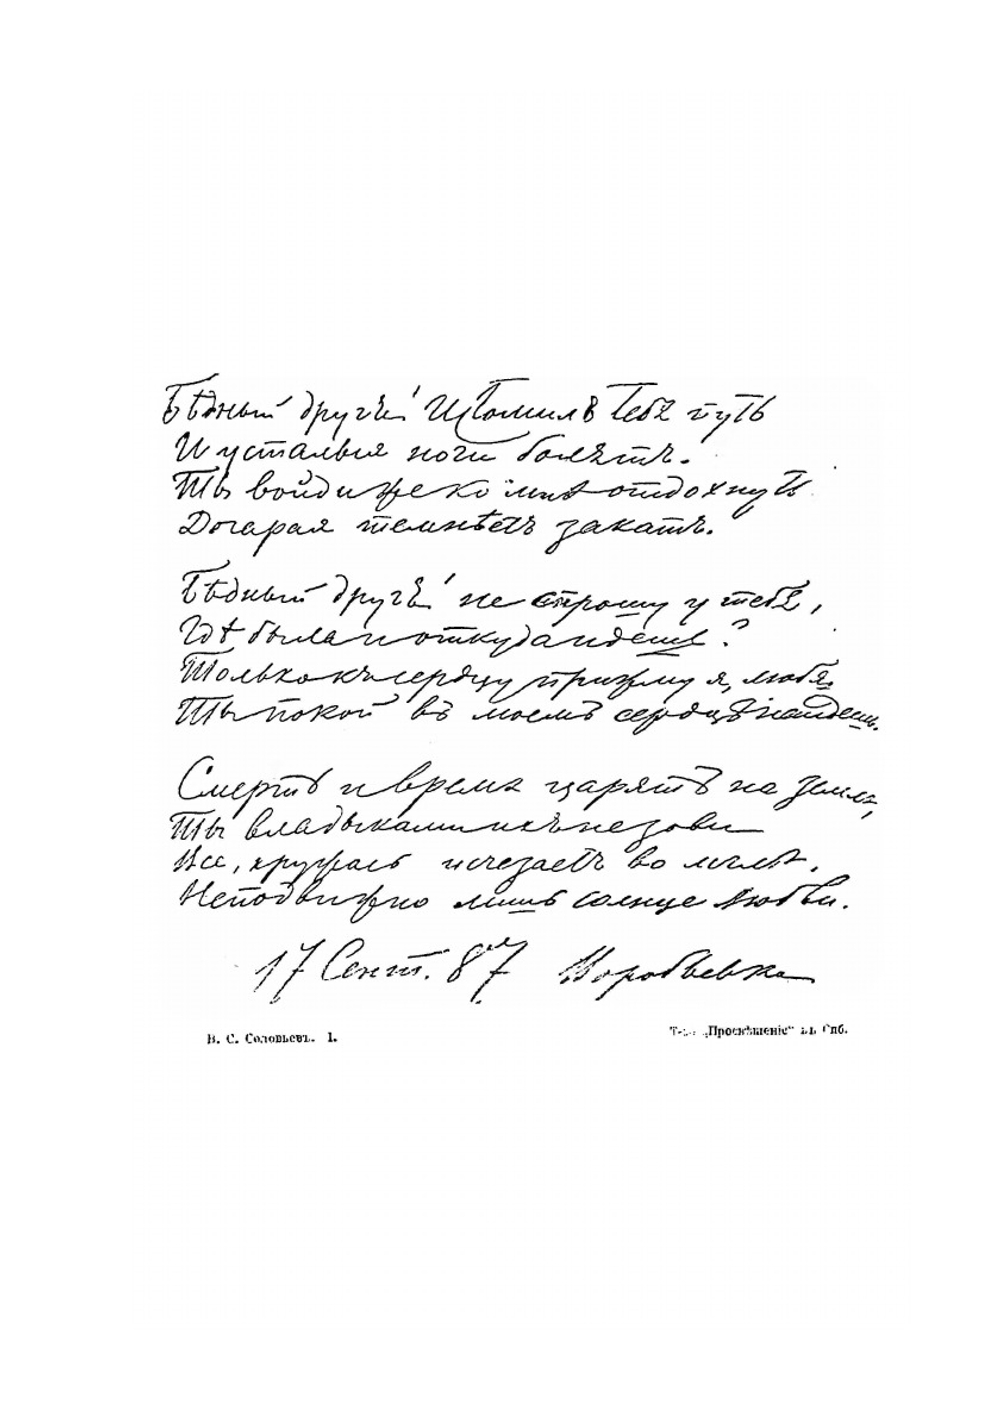 Бѣдный другъ! Истомилъ тебя путь
И усталыя ноги болятъ.
Ты войди же ко мнѣ отдохнуть
Догарая темнѣетъ закатъ.
Бѣдный другъ! не спрошу у тебя,
Гдѣ была и откуда идешь?
Только къ сердцу прижму я, любя
Ты покой въ моемъ сердцѣ найдешь.
Смерть и время царятъ на землѣ,
Ты владыками ихъ не зови
Все, кружась исчезаетъ во мглѣ,
Неподвижно лишь солнце любви.
17 Сент. 87 Воробьевка
В. С. Соловьевъ. I.
„Просвѣщеніе“ въ Спб.